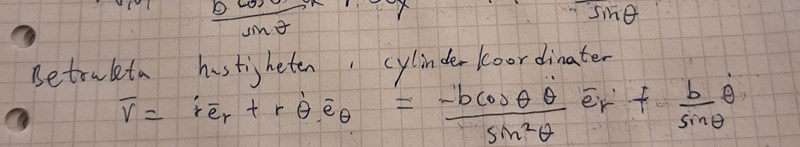 b cos
sinθ
sinθ
Betrakta hastigheten i cylinderkoordinater
v̄ = ṙēr + r θ̇ ēθ = -b cosθ θ̈ / sin²θ ēr + b / sinθ θ̇